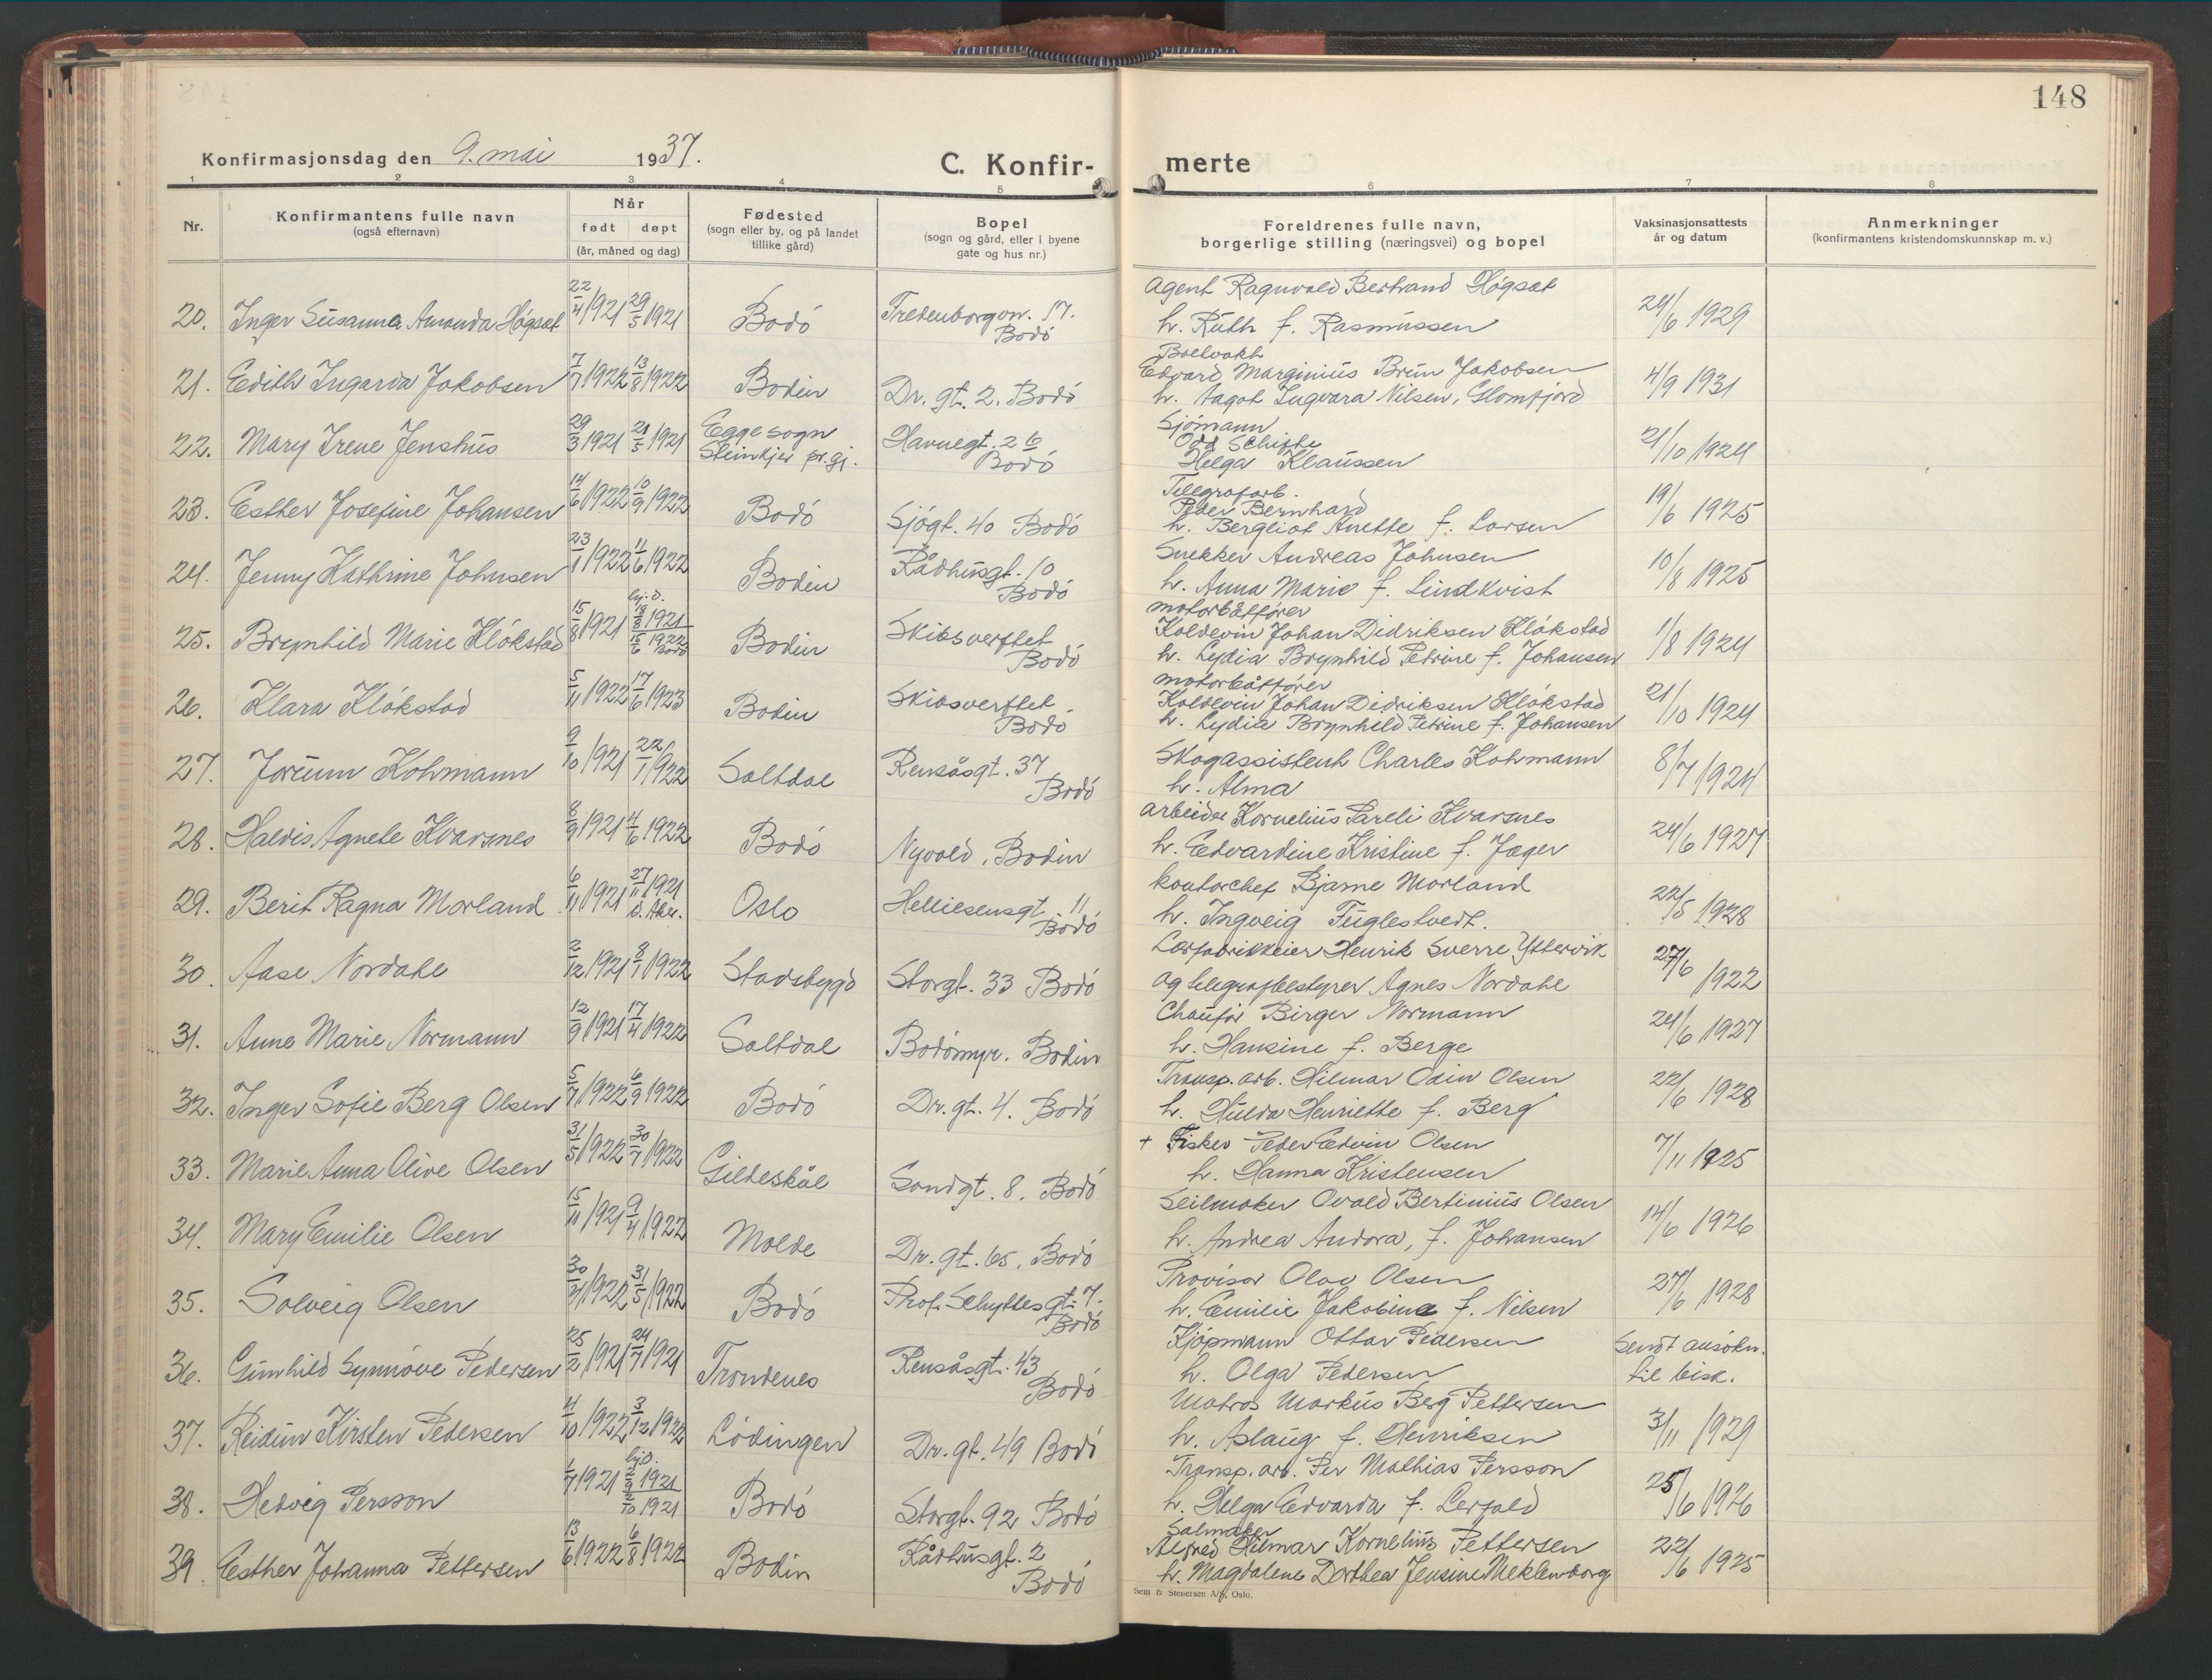 148
Konfirmasjonsdag den 9. mai 1937.
C. Konfir- merte
1 2 3 4 5 6 7 8
Nr.
Konfirmantens fulle navn
(også efternavn)
Når
født døpt
(år, måned og dag)
Fødested
(sogn eller by, og på landet
tillike gård)
Bopel
(sogn og gård, eller i byene
gate og hus nr.)
Foreldrenes fulle navn,
borgerlige stilling (næringsvei) og bopel
Vaksinasjonsattests
år og datum
Anmerkninger
(konfirmantens kristendomskunnskap m. v.)
20. Inger Susanna Amanda Høgset 22/4 1921 29/5 1921 Bodö Fredenborgv. 17. Bodö
Agent Ragnvald Bertrand Høgset
h. Ruth f. Rasmussen 29/6 1929
21. Edith Ingarda Jakobsen 7/7 1922 13/8 1922 Bodin Dr. gt. 2. Bodö
Edvard Marginius Brun Jakobsen
h. Aagot Ingvara Nilsen, Glomfjord 4/9 1931
22. Mary Irene Jenshus 29/3 1921 21/5 1921 Egge sogn Steinkjer pr.gj. Havnegt. 26 Bodö
Sjömann
Odd Schiefte
Helga Klaussen 21/10 1924
23. Esther Josefine Johansen 14/6 1922 10/9 1922 Bodö Sjögt. 40 Bodö
Telegrafarb.
Peder Bernhard
h. Bergliot Anette f. Larsen 19/6 1925
24. Jenny Kathrine Johnsen 23/1 1922 11/6 1922 Bodin Rådhusgt. 10 Bodö
Snekker Andreas Johnsen
h. Anna Marie f. Lindkvist 10/8 1925
25. Brynhild Marie Klökstad 15/8 1921 hj.d. 18/8 1921 15/6 1922 Bodö Bodin Skibsverftet Bodö
motorbåtfører
Koldevin Johan Didriksen Klökstad
h. Lydia Brynhild Petrine f. Johansen 1/8 1924
26. Klara Klökstad 5/11 1922 17/6 1923 Bodin Skibsverftet Bodö
motorbåtfører
Koldevin Johan Didriksen Klökstad
h. Lydia Brynhild Petrine f. Johansen 21/10 1924
27. Jorunn Kohmann 9/10 1921 22/1 1922 Saltdal Rensåsgt. 37 Bodö
Skogassistent Charles Kohmann
h. Alma 8/7 1924
28. Haldis Agnete Kvarsnes 8/9 1921 4/6 1922 Bodö Nyvold, Bodin
arbeider Kornelius Pareli Kvarsnes
h. Edvardine Kristine f. Jæger 24/6 1927
29. Berit Ragna Morland 6/11 1921 27/11 1921 Ö. Aker. Oslo Helliesensgt. 11 Bodö
kontorchef Bjarne Morland
h. Ingveig Fuglestvedt. 22/5 1928
30. Aase Nordahl 2/12 1921 8/1 1922 Stadsbygd Storgt. 33 Bodö
Lærfabrikkeier Henrik Sverre Yttervik
og telegrafbestyrer Agnes Nordahl 27/6 1922
31. Anna Marie Normann 12/9 1921 17/4 1922 Saltdal Bodömyr. Bodin
Chauför Birger Normann
h. Hansine f. Berge 24/6 1927
32. Inger Sofie Berg Olsen 5/7 1922 6/9 1922 Bodö Dr. gt. 4. Bodö
Transp. arb. Hilmar Odin Olsen
h. Hulda Henriette f. Berg 22/6 1928
33. Marie Anna Olive Olsen 31/5 1922 30/7 1922 Gildeskål Sandgt. 8. Bodö
+ Fisker Peder Edvin Olsen
h. Hanna Kristensen 7/11 1925
34. Mary Emilie Olsen 15/11 1921 9/4 1922 Molde Dr. gt. 65, Bodö
Seilmaker Ovald Bertinius Olsen
h. Andrea Andora, f. Johansen 14/6 1926
35. Solveig Olsen 30/1922 31/5 1922 Bodö Prof. Schyttesgt. 7. Bodö
Provisor Olav Olsen
h. Emilie Jakobine f. Nilsen 27/6 1928
36. Gunhild Synnöve Pedersen 25/2 1921 24/7 1921 Trondenes Rensåsgt. 43 Bodö
Kjöpmann Ottar Pedersen
h. Olga Pedersen Sendt ansökn. til bisk.
37. Reidun Kirsten Pedersen 4/10 1922 3/12 1922 Lödingen Dr. gt. 49 Bodö
Matros Markus Berg Pettersen
h. Aslaug f. Henriksen 3/11 1929
38. Hedvig Persson 1/7 1921 hj.d. 2/9 1921 2/10 1921 Bodö Storgt. 92 Bodö
Transp. arb. Per Mathias Persson
h. Helga Edvarda f. Lerfald 25/6 1926
39. Esther Johanna Pettersen 13/6 1922 6/8 1922 Bodin Rådhusgt. 2 Bodö
Salmaker
Alfred Hilmar Kornelius Pettersen
h. Magdalene Dorthea Jensine Meklenborg 22/6 1925
Sem & Stenersen A/S, Oslo.